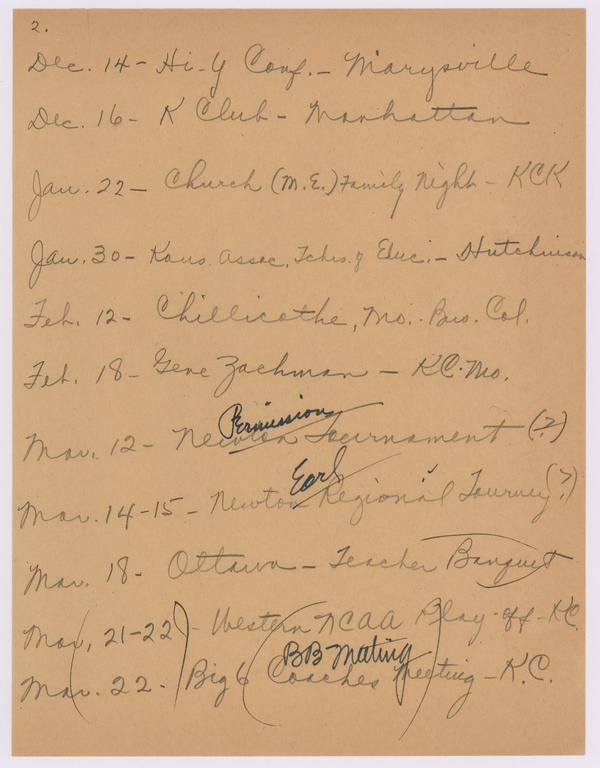 2.
Dec. 14- Hi-Y Conf. - Marysville
Dec. 16- K Club - Manhattan
Jan. 22- Church (M.E.) Family Night - KCK
Jan. 30- Kans. Assoc. Tchrs. of Educ. - Hutchinson
Feb. 12- Chillicothe, Mo. Bus. Col.
Feb. 18- Gene Zachman - KC. Mo.
Permission
Mar. 12- Newton Tournament (?)
Earl
Mar. 14-15- Newton Regional Tourney (?)
Mar. 18- Ottawa - Teacher Banquet
Mar, 21-22)- Western NCAA Play-off - KC.
BB Meeting
Mar. 22- Big 6 Coaches Meeting - K.C.